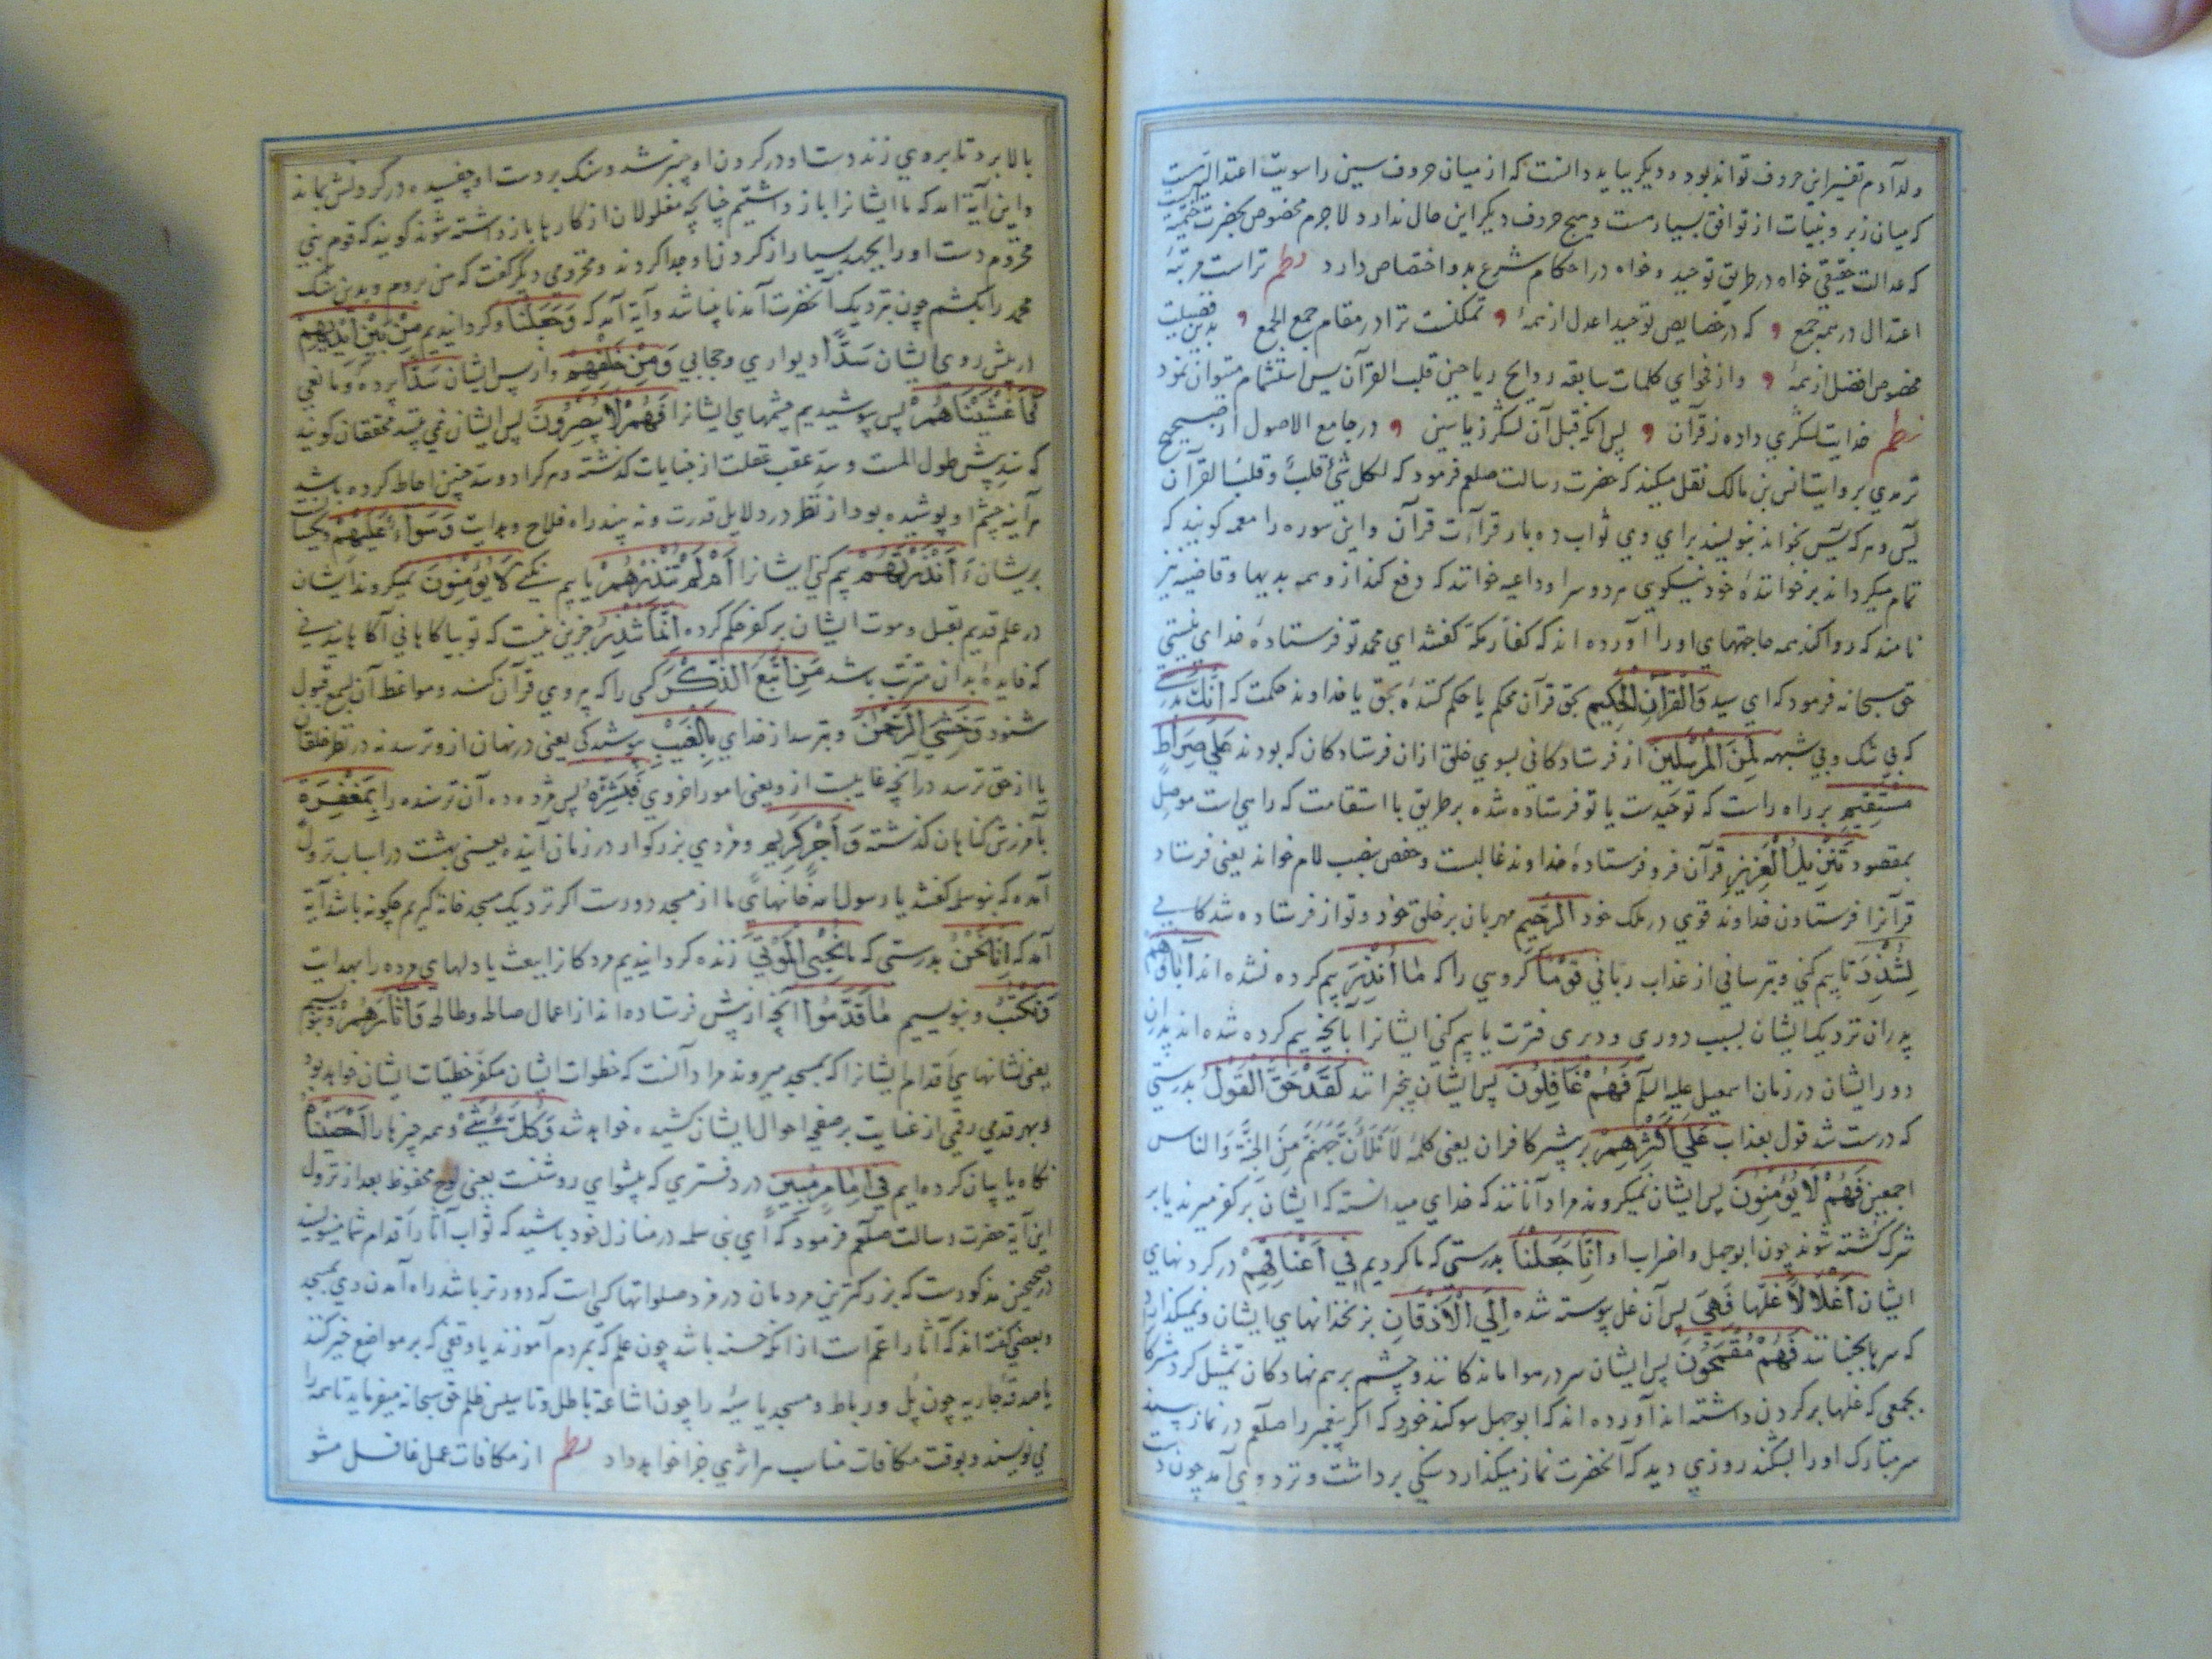 ولد آدم تفسیر این حروف تواند بود و دیکر بباید دانست که از میان حروف سین را سویت اعتدالیست
که میان زبر و بنیات از توافق بسیار هست و هیچ حروف دیکر این حال ندارد لاجرم مخصوص بحضرت ختمیه است
که عدالت حقیقی خواه در طریق توحید و خواه در احکام شرع بدو اختصاص دارد نظم تراست مرتبهٔ
اعتدال در همه جمع که در خصایص توحید اعدل از همهٔ تمکنت ترا در مقام جمع الجمع بدین فضیلت
مخصوص افضل از همهٔ و از فحوای کلمات سابقه روایح ریاحین قلب القرآن یس استشمام میتوان نمود
نظم خدایت لشکری داده ز قرآن پس انکه قبل آن لشکر ز یاسین در جامع الاصول از صحیح
ترمدی بروایت انس بن مالک نقل میکند که حضرت رسالت صلعم فرمود که لکل شیء قلب و قلب القرآن
یس و هر که یس بخواند بنویسند برای وی ثواب ده بار قرآءت قرآن و این سوره را معمه کویند که
تمام میکرداند بر خوانندهٔ خود نیکوی هر دو سرا و داعیه خوانند که دفع کند از و همه بدیها و قاضیه نیز
نامند که روا کند همه حاجتهای او را آورده اند که کفار مکه کفتند ای محمد تو فرستادهٔ خدای نیستی
حق سبحانه فرمود که ای سید وَالْقُرْآنِ الْحَكِيمِ بحق قرآن محکم یا حکم کنندهٔ بحق یا خداوند حکمت که اِنَّكَ بدرستی
که بی شک و بی شبهه لَمِنَ الْمُرْسَلِينَ از فرستادکانی بسوی خلق ازان فرستادکان که بودند عَلَى صِرَاطٍ
مُسْتَقِيمٍ بر راه راست که توحیدست یا تو فرستاده شده بر طریق با استقامت که راهی است موصل
بمقصود تَنْزِيلُ الْعَزِيزِ قرآن فرو فرستادهٔ خداوند غالبست و حفص بنصب لام خواند یعنی فرستاد
قرآنرا فرستادن خداوند قوی در ملک خود الرَّحِيمِ مهربان بر خلق خود و تو از فرستاده شدکانی
لِتُنْذِرَ تا بیم کنی و بترسانی از عذاب ربانی قَوْمًا کروهی را که مَا أُنْذِرَ بیم کرده نشده اند آبَاؤُهُمْ
پدران نزدیک ایشان بسبب دوری و دیری فترت یا بیم کنی ایشانرا بآنچه بیم کرده شده اند پدران
دور ایشان در زمان اسمعیل علیه السلم فَهُمْ غَافِلُونَ پس ایشان بیخبرانند لَقَدْ حَقَّ الْقَوْلُ بدرستی
که درست شد قول بعذاب عَلَى أَكْثَرِهِمْ بر بیشتر کافران یعنی کلمهٔ لَأَمْلَأَنَّ جَهَنَّمَ مِنَ الْجِنَّةِ وَالناس
اجمعین فَهُمْ لَا يُؤْمِنُونَ پس ایشان نمیکروند مراد آنانند که خدای میدانسته که ایشان بر کفر میرند یا بر
شرک کشته شوند چون ابوجهل و اضراب او اِنَّا جَعَلْنَا بدرستی که ما کردیم فِي أَعْنَاقِهِمْ در کردنهای
ایشان أَغْلَالًا غلها فَهِيَ پس آن غل پیوسته شده اِلَى الْأَذْقَانِ بزنخدانهای ایشان و نمیکذارد
که سرها بجنبانند فَهُمْ مُقْمَحُونَ پس ایشان سر در هوا ماندکانند و چشم برهم نهادکان تمثیل کرد مشرکانرا
بجمعی که غلها بر کردن داشته اند آورده اند که ابوجهل سوکند خورد که اکر پیغمبر را صلعم در نماز بیند
سر مبارک او را بشکند روزی دید که آنحضرت نماز میکذارد سنکی برداشت و نزد وی آمد چون دست
بالا برد تا بر وی زند دست او در کردن او چنبر شد و سنک بر دست او چفسیده در کردنش بماند
و این آیة آمد که ما ایشانرا باز داشتیم چنانچه مغلولان از کارها باز داشته شوند کویند که قوم بنی
مخزوم دست او را بجهد بسیار از کردن او جدا کردند و مخزومی دیکر کفت که من بروم و بدین سنک
محمد را بکشم چون نزدیک آنحضرت آمد نابینا شد و آیة آمد که وَجَعَلْنَا و کردانیدیم مِنْ بَيْنِ أَيْدِيهِمْ
از پیش روی ایشان سَدًّا دیواری و حجابی وَمِنْ خَلْفِهِمْ و از پس ایشان سَدًّا پرده و مانعی
فَأَغْشَيْنَاهُمْ پس بپوشیدیم چشمهای ایشانرا فَهُمْ لَا يُبْصِرُونَ پس ایشان نمی بینند محققان کویند
که سد پیش طول املست و سد عقب غفلت از جنایات کذشته و هر کرا دو سد چنین احاطه کرده باشد
هر آینه چشم او پوشیده بود از نظر در دلایل قدرت و نه بیند راه فلاح و هدایت وَسَوَاءٌ عَلَيْهِمْ و یکسانست
بریشان أَأَنْذَرْتَهُمْ بیم کنی ایشانرا أَمْ لَمْ تُنْذِرْهُمْ یا بیم نکنی لَا يُؤْمِنُونَ نمیکروند ایشان
در علم قدیم بقتل و موت ایشان بر کفر حکم کرده اِنَّمَا تُنْذِرُ جزین نیست که تو بیاکاهانی آکاهانیدنی
که فایدهٔ بدان مترتب باشد مَنِ اتَّبَعَ الذِّكْرَ کسی را که پیروی قرآن کند و مواعظ آن بسمع قبول
شنود وَخَشِيَ الرَّحْمٰنَ و بترسد از خدای بِالْغَيْبِ بپوشیدکی یعنی در نهان ازو ترسد نه در نظر خلقان
یا از حق ترسد در آنچه غایبست ازو یعنی امور اخروی فَبَشِّرْهُ پس مژده ده آن ترسنده را بِمَغْفِرَةٍ
بآمرزش کناهان کذشته وَأَجْرٍ كَرِيمٍ و مزدی بزرکوار در زمان آینده یعنی بهشت در اسباب نزول
آمده که بنو سلمه کفتند یا رسول الله خانهای ما از مسجد دورست اکر نزدیک مسجد خانه کیریم چکونه باشد آیة
آمد که اِنَّا نَحْنُ بدرستی که ما نُحْيِي الْمَوْتَى زنده کردانیدیم مردکانرا ببعث یا دلهای مرده را بهدایت
وَنَكْتُبُ و بنویسیم مَا قَدَّمُوا آنچه از پیش فرستاده اند از اعمال صالحه و طالحه وَآثَارَهُمْ و بنویسیم
یعنی نشانهای اقدام ایشانرا که بمسجد میروند مراد آنست که خطوات ایشان مکفر خطیئات ایشان خواهد بود
و بهر قدمی رقمی از عنایت بر صفحهٔ احوال ایشان کشیده خواهد شد وَكُلَّ شَيْءٍ و همه چیزها را أَحْصَيْنَاهُ
نکاه یا بیان کرده ایم فِي إِمَامٍ مُبِينٍ در دفتری که پیشوای روشنست یعنی لوح محفوظ بعد از نزول
این آیة حضرت رسالت صلعم فرمود که ای بنی سلمه در منازل خود باشید که ثواب آثار اقدام شما مینویسند
در صحیحین مذکورست که بزرکترین مردمان در مزد صلواتها کسی است که دورتر باشد راه آمدن وی بمسجد
و بعضی کفته اند که آثار اعم است از انکه حسنه باشد چون علم که بمردم آموزند یا وقفی که بر مواضع خیر کنند
یا صدقهٔ جاریه چون پل و رباط و مسجد یا سیئه را چون اشاعة باطل و تاسیس ظلم حق سبحانه میفرماید تا همه را
می نویسند و بوقت مکافات مناسب هر اثری جزا خواهد داد نظم از مکافات عمل غافل مشو